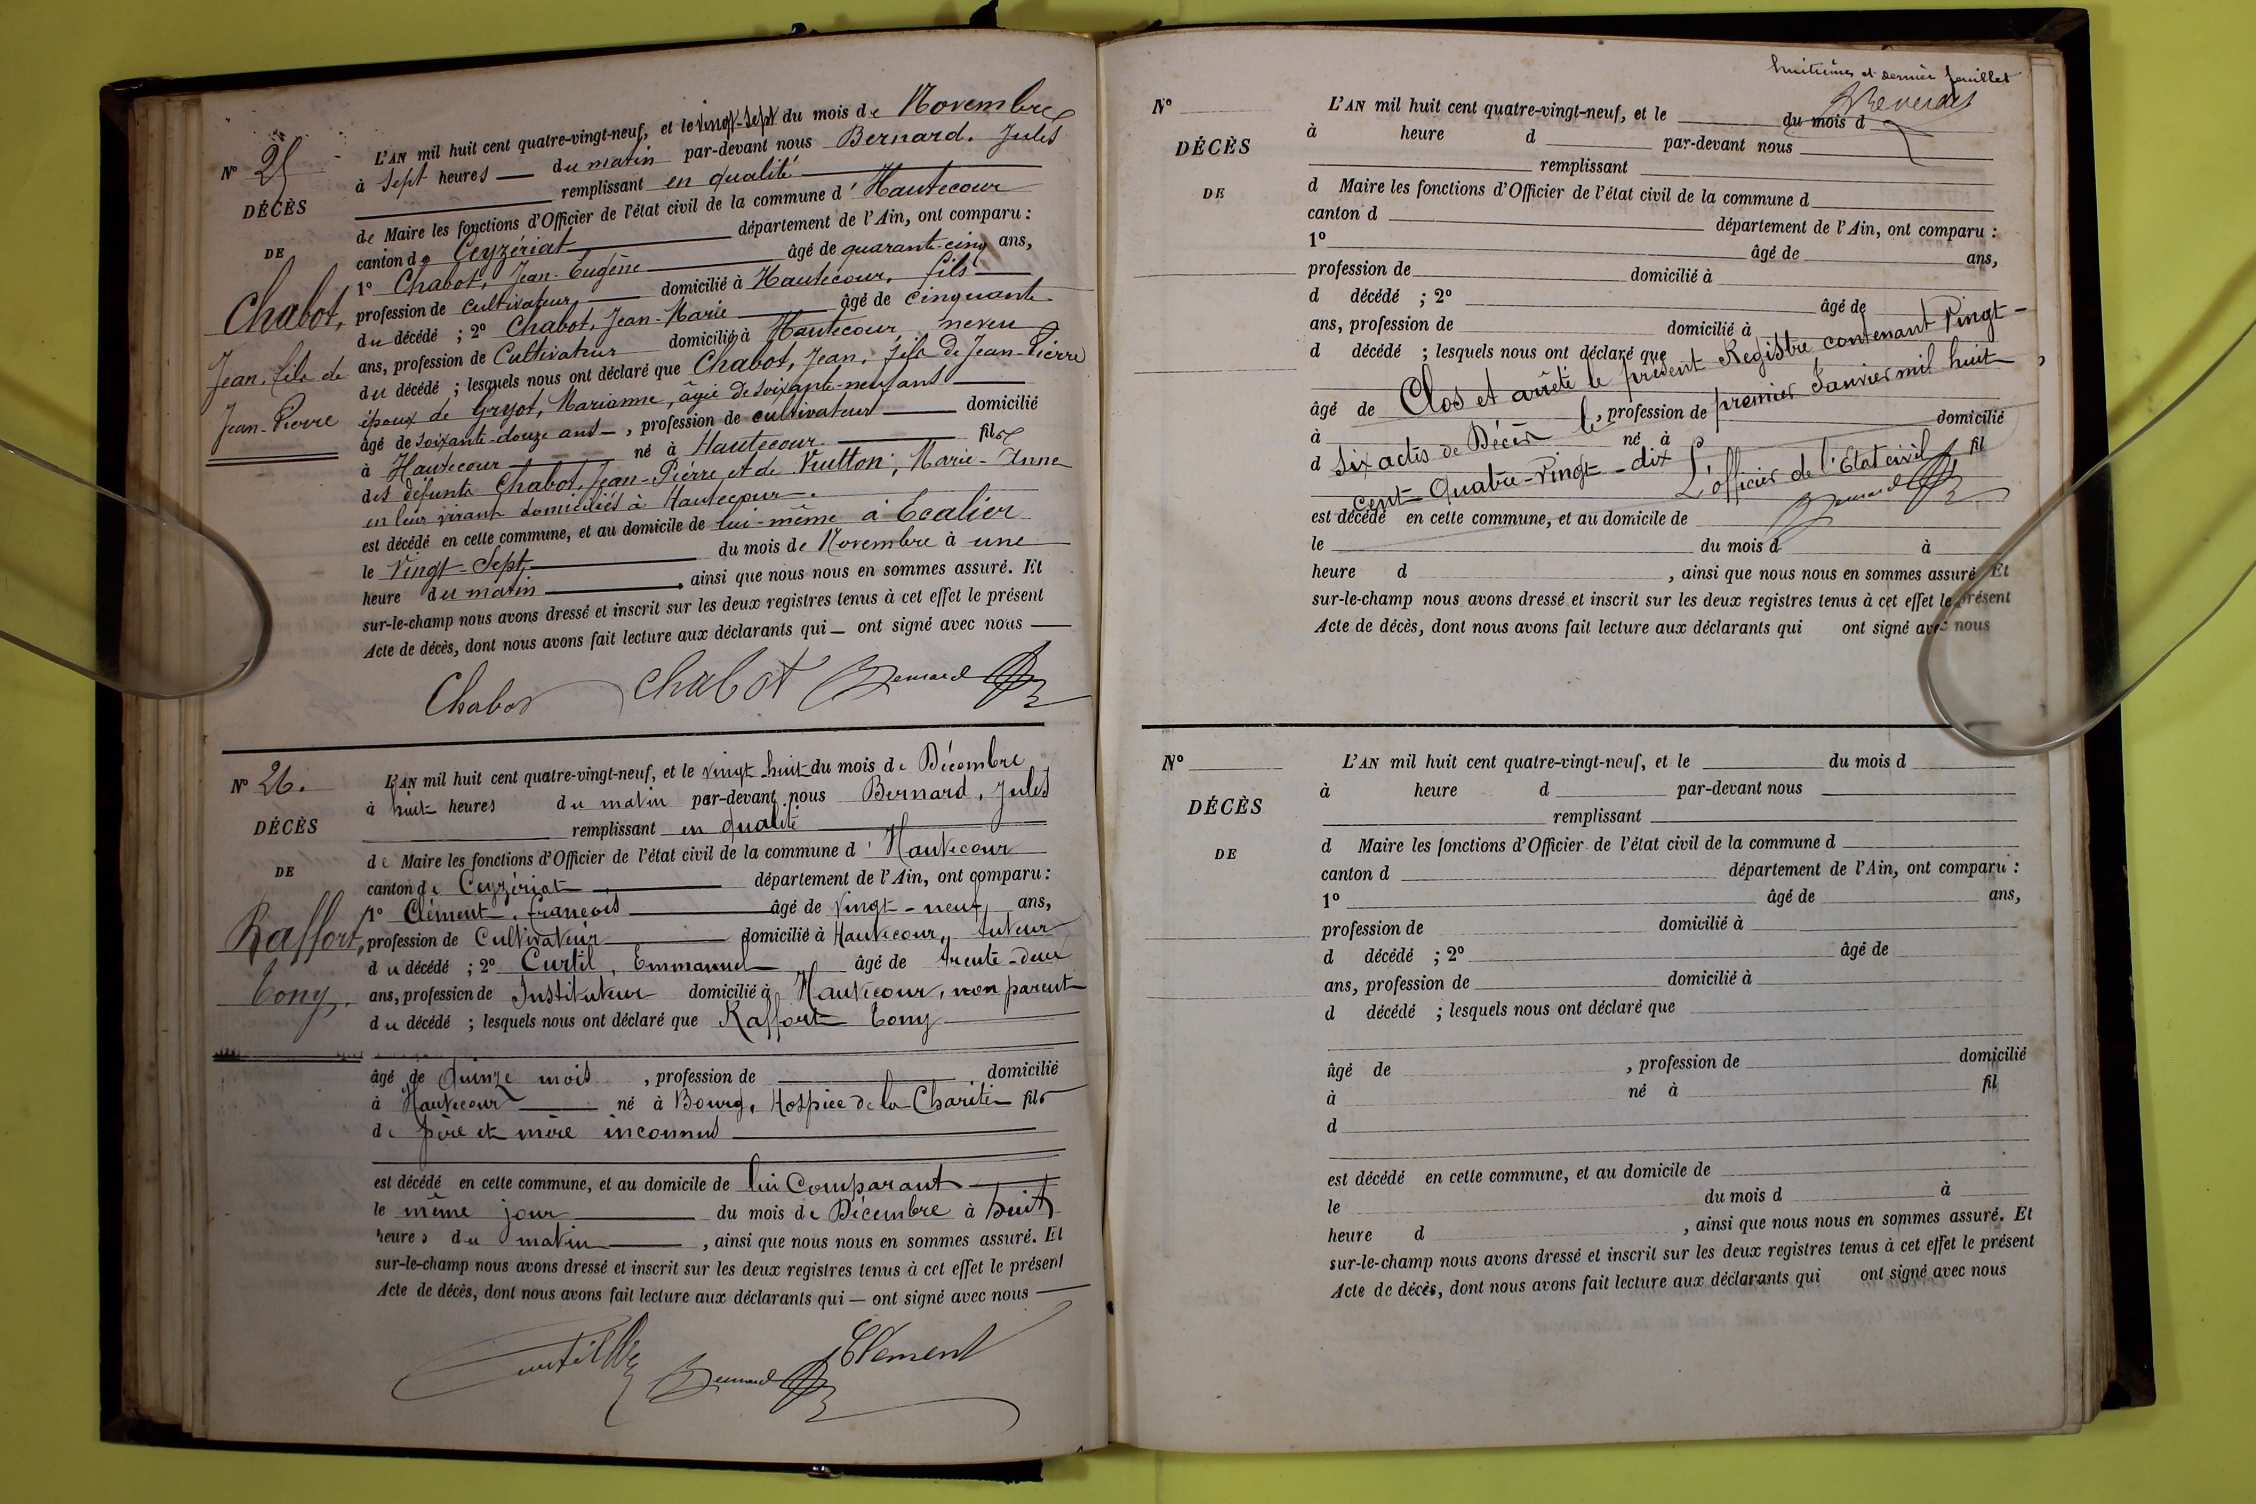 N° 25
DÉCÈS
DE
Chabot,
Jean, fils de
Jean-Pierre
L'AN mil huit cent quatre-vingt-neuf, et le vingt-sept du mois de Novembre
à sept heures du matin par-devant nous Bernard, Jules
remplissant en qualité
de Maire les fonctions d'Officier de l'état civil de la commune d'Hautecour
canton de Ceyzériat département de l'Ain, ont comparu :
1° Chabot, Jean-Eugène âgé de quarante-cinq ans,
profession de cultivateur, domicilié à Hautecour, fils
du décédé ; 2° Chabot, Jean-Marie âgé de cinquante
ans, profession de Cultivateur domicilié à Hautecour, neveu
du décédé ; lesquels nous ont déclaré que Chabot, Jean, fils de Jean-Pierre
époux de Gryot, Marianne, âgée de soixante-neuf ans
âgé de soixante-douze ans, profession de cultivateur domicilié
à Hautecour né à Hautecour fils
des défunts Chabot, Jean-Pierre et de Vuitton, Marie-Anne
en leur vivant domiciliés à Hautecour.
est décédé en cette commune, et au domicile de lui-même à Ecalier
le Vingt-Sept du mois de Novembre à une
heure du matin, ainsi que nous nous en sommes assuré. Et
sur-le-champ nous avons dressé et inscrit sur les deux registres tenus à cet effet le présent
Acte de décès, dont nous avons fait lecture aux déclarants qui — ont signé avec nous —
Chabot Chabot Bernard
N° 26.
DÉCÈS
DE
Raffort,
Tony,
L'AN mil huit cent quatre-vingt-neuf, et le vingt-huit du mois de Décembre
à huit heures du matin par-devant nous Bernard, Jules
remplissant en qualité
de Maire les fonctions d'Officier de l'état civil de la commune d'Hautecour
canton de Ceyzériat département de l'Ain, ont comparu :
1° Clément, françois âgé de vingt-neuf ans,
profession de Cultivateur domicilié à Hautecour, tuteur
du décédé ; 2° Curtil, Emmanuel âgé de trente-deux
ans, profession de Instituteur domicilié à Hautecour, non parent
du décédé ; lesquels nous ont déclaré que Raffort Tony
âgé de quinze mois, profession de domicilié
à Hautecour né à Bourg, Hospice de la Charité fils
de père et mère inconnus
est décédé en cette commune, et au domicile de lui Comparant
le même jour du mois de Décembre à huit
heures du matin, ainsi que nous nous en sommes assuré. Et
sur-le-champ nous avons dressé et inscrit sur les deux registres tenus à cet effet le présent
Acte de décès, dont nous avons fait lecture aux déclarants qui — ont signé avec nous —
Curtil Bernard Clément
huitième et dernier feuillet
N°
DÉCÈS
DE
L'AN mil huit cent quatre-vingt-neuf, et le du mois d
à heure d par-devant nous
remplissant
d Maire les fonctions d'Officier de l'état civil de la commune d
canton d département de l'Ain, ont comparu :
1° âgé de ans,
profession de domicilié à
d décédé ; 2° âgé de
ans, profession de domicilié à
d décédé ; lesquels nous ont déclaré que
Clos et arrêté le présent Registre contenant Vingt-
âgé de , profession de domicilié
six actes de Décès le premier Janvier mil huit
à né à fil
d
cent Quatre-Vingt-dix L'officier de l'Etat civil
Bernard
est décédé en cette commune, et au domicile de
le du mois d à
heure d , ainsi que nous nous en sommes assuré. Et
sur-le-champ nous avons dressé et inscrit sur les deux registres tenus à cet effet le présent
Acte de décès, dont nous avons fait lecture aux déclarants qui ont signé avec nous
N°
DÉCÈS
DE
L'AN mil huit cent quatre-vingt-neuf, et le du mois d
à heure d par-devant nous
remplissant
d Maire les fonctions d'Officier de l'état civil de la commune d
canton d département de l'Ain, ont comparu :
1° âgé de ans,
profession de domicilié à
d décédé ; 2° âgé de
ans, profession de domicilié à
d décédé ; lesquels nous ont déclaré que
âgé de , profession de domicilié
à né à fil
d
est décédé en cette commune, et au domicile de
le du mois d à
heure d , ainsi que nous nous en sommes assuré. Et
sur-le-champ nous avons dressé et inscrit sur les deux registres tenus à cet effet le présent
Acte de décès, dont nous avons fait lecture aux déclarants qui ont signé avec nous